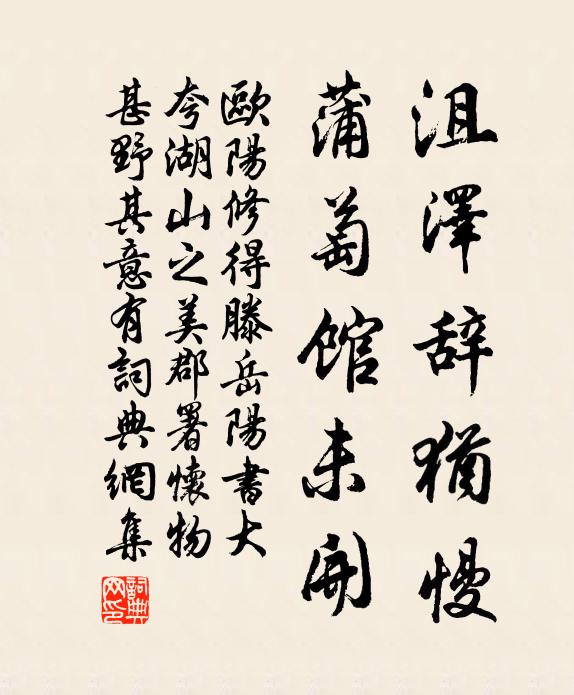 沮澤辞猶慢
蒲萄館未開
歐陽修得滕岳陽書大
夸湖山之美郡署懷物
甚野其意有詞典網集
詞典網印